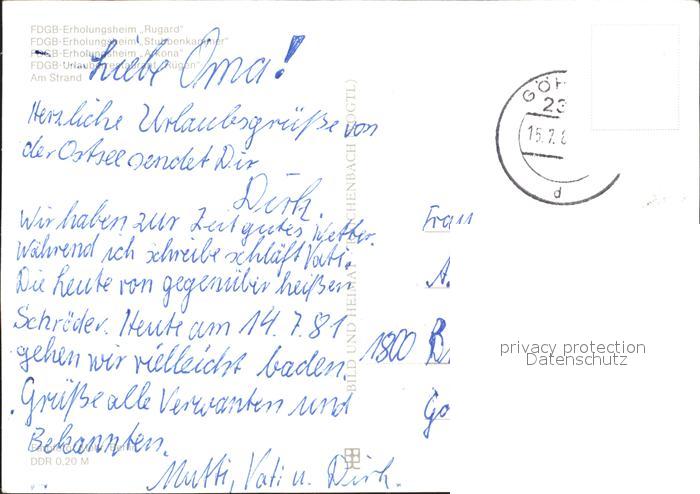 FDGB-Erholungsheim „Rugard"
FDGB-Erholungsheim „Stubbenkammer"
FDGB-Erholungsheim „Arkona"
FDGB-Urlauberrestaurant „Rügen"
Am Strand
Liebe Oma!
Herzliche Urlaubsgrüße von
der Ostsee sendet Dir
Dirk.
Wir haben zur Zeit gutes Wetter.
Während ich schreibe schläft Vati.
Die Leute von gegenüber heißen
Schröder. Heute am 14.7.81
gehen wir vielleicht baden.
Grüße alle Verwanten und
Bekannten.
Mutti, Vati u. Dirk.
DDR 0,20 M
BILD UND HEIMAT REICHENBACH (VOGTL)
GÖH
23
15.7.8
d
Frau
A.
1800 B
Go
privacy protection
Datenschutz